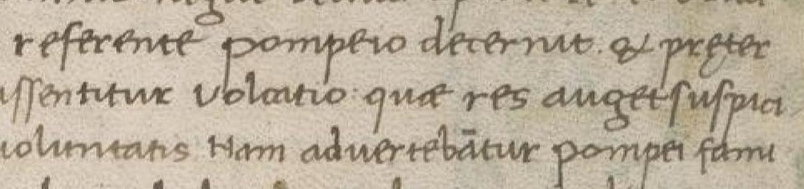 referente pompeio decernit. & pręter
assentitur Volcatio: quæ res auget suspici
uoluntatis Nam aduertebātur pompei fami